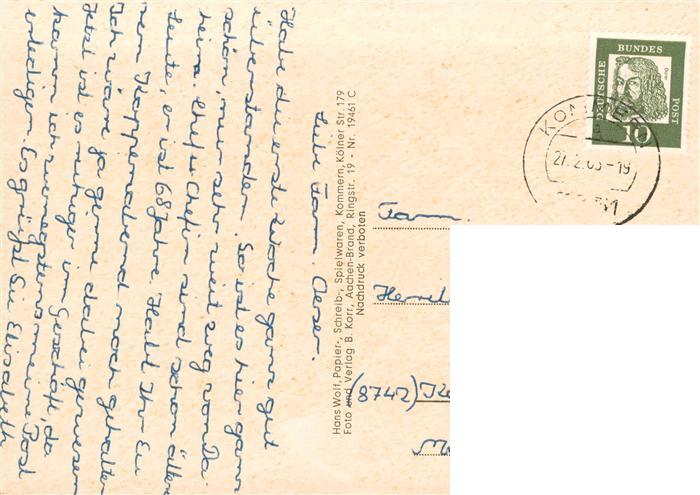 Liebe Fam. Oeser.
Habe die erste Woche ganz gut
überstanden. So ist es hier ganz
schön, nur sehr weit weg von Da-
heim. Chef u. Chefin sind schon ältere
Leute, er ist 68 Jahre. Habt Ihr Eu
ren Kappenabend noch gehalten
Ich wäre ja gerne dabei gewesen
Jetzt ist es ruhiger im Geschäft, da
kann ich wenigstens meine Post
erledigen. Es grüßt Sie Elisabeth
Hans Wolf, Papier-, Schreib-, Spielwaren, Kommern, Kölner Str. 179
Foto und Verlag B. Korr, Aachen-Brand, Ringstr. 19 - Nr. 19461 C
Nachdruck verboten
DEUTSCHE BUNDESPOST
Dürer
10
KOMMERN
Fam.
(8742)